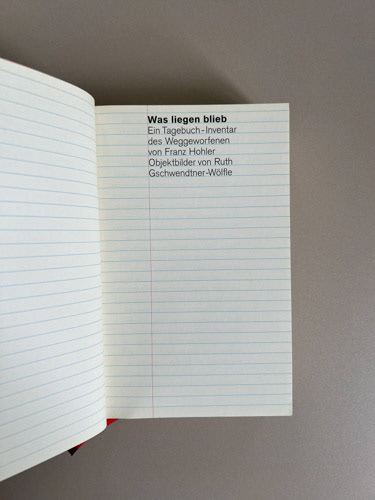 Was liegen blieb
Ein Tagebuch-Inventar
des Weggeworfenen
von Franz Hohler
Objektbilder von Ruth
Gschwendtner-Wölfle